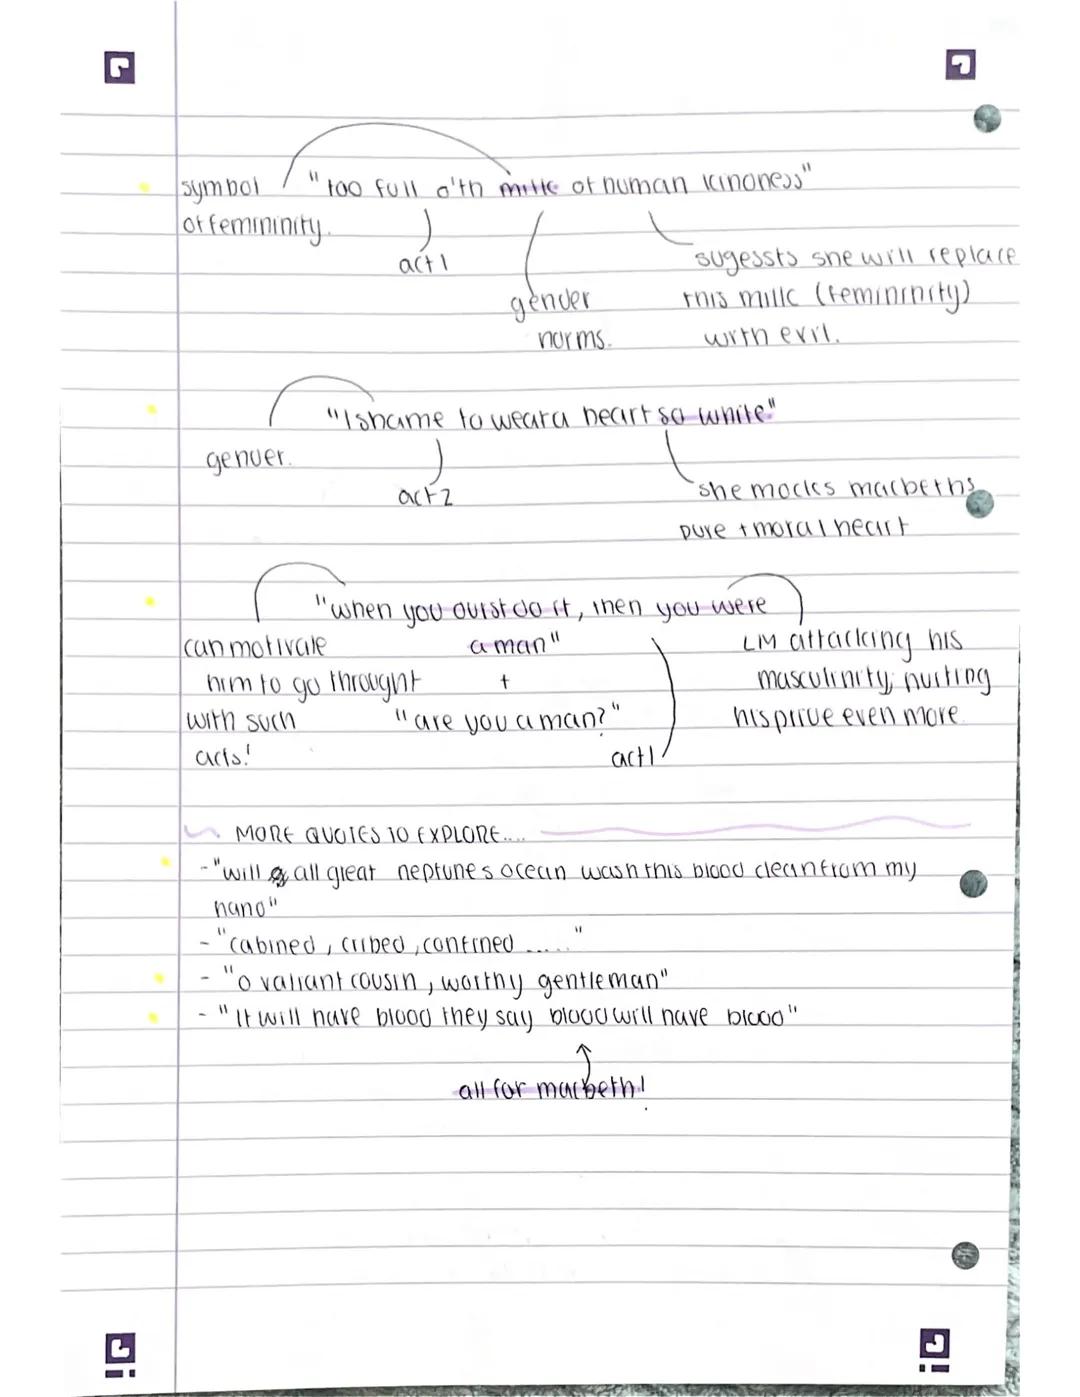 symbol "too full o'th milk of human kindness"
of femininity.
act 1
sugessts she will replace
gender this milk (femininity)
norms. with evil.
"I shame to wear a heart so white"
gender.
act 2
she mocks macbeths
pure + moral heart
"when you durst do it, then you were
can motivate a man" LM attacking his
him to go throught + masculinity, hurting
with such "are you a man?" his pride even more.
acts! act 1
MORE QUOTES TO EXPLORE....
- "will all great neptunes ocean wash this blood clean from my
hand"
- "cabined, cribed, confined ....."
- "o valiant cousin, worthy gentleman"
- "It will have blood they say blood will have blood"
all for macbeth!